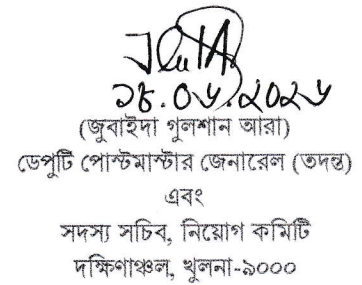 ১৮.০৬.২০২৬
(জুবাইদা গুলশান আরা)
ডেপুটি পোস্টমাস্টার জেনারেল (তদন্ত)
এবং
সদস্য সচিব, নিয়োগ কমিটি
দক্ষিণাঞ্চল, খুলনা-৯০০০